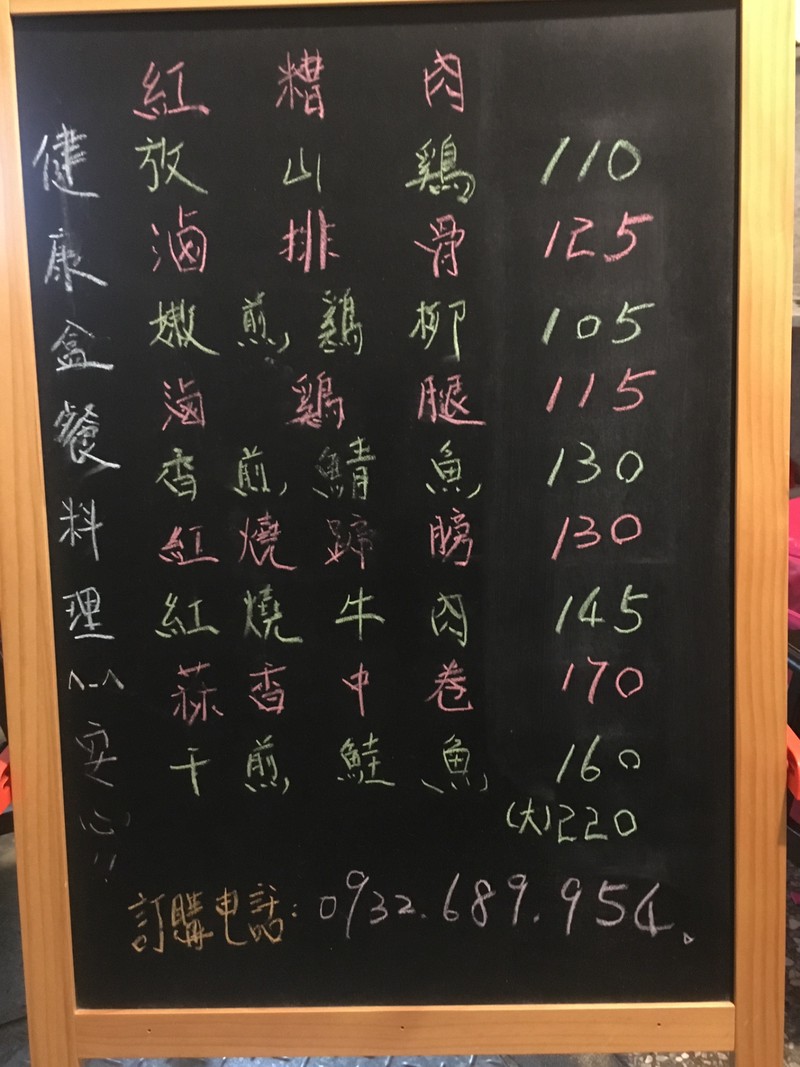 紅糟肉
放山鷄 110
滷排骨 125
嫩煎鷄柳 105
滷鷄腿 115
香煎鯖魚 130
紅燒蹄膀 130
紅燒牛肉 145
蒜香中卷 170
干煎鮭魚 160
(大)220
健康盒餐料理^-^安心!!
訂購电話:0932.689.954